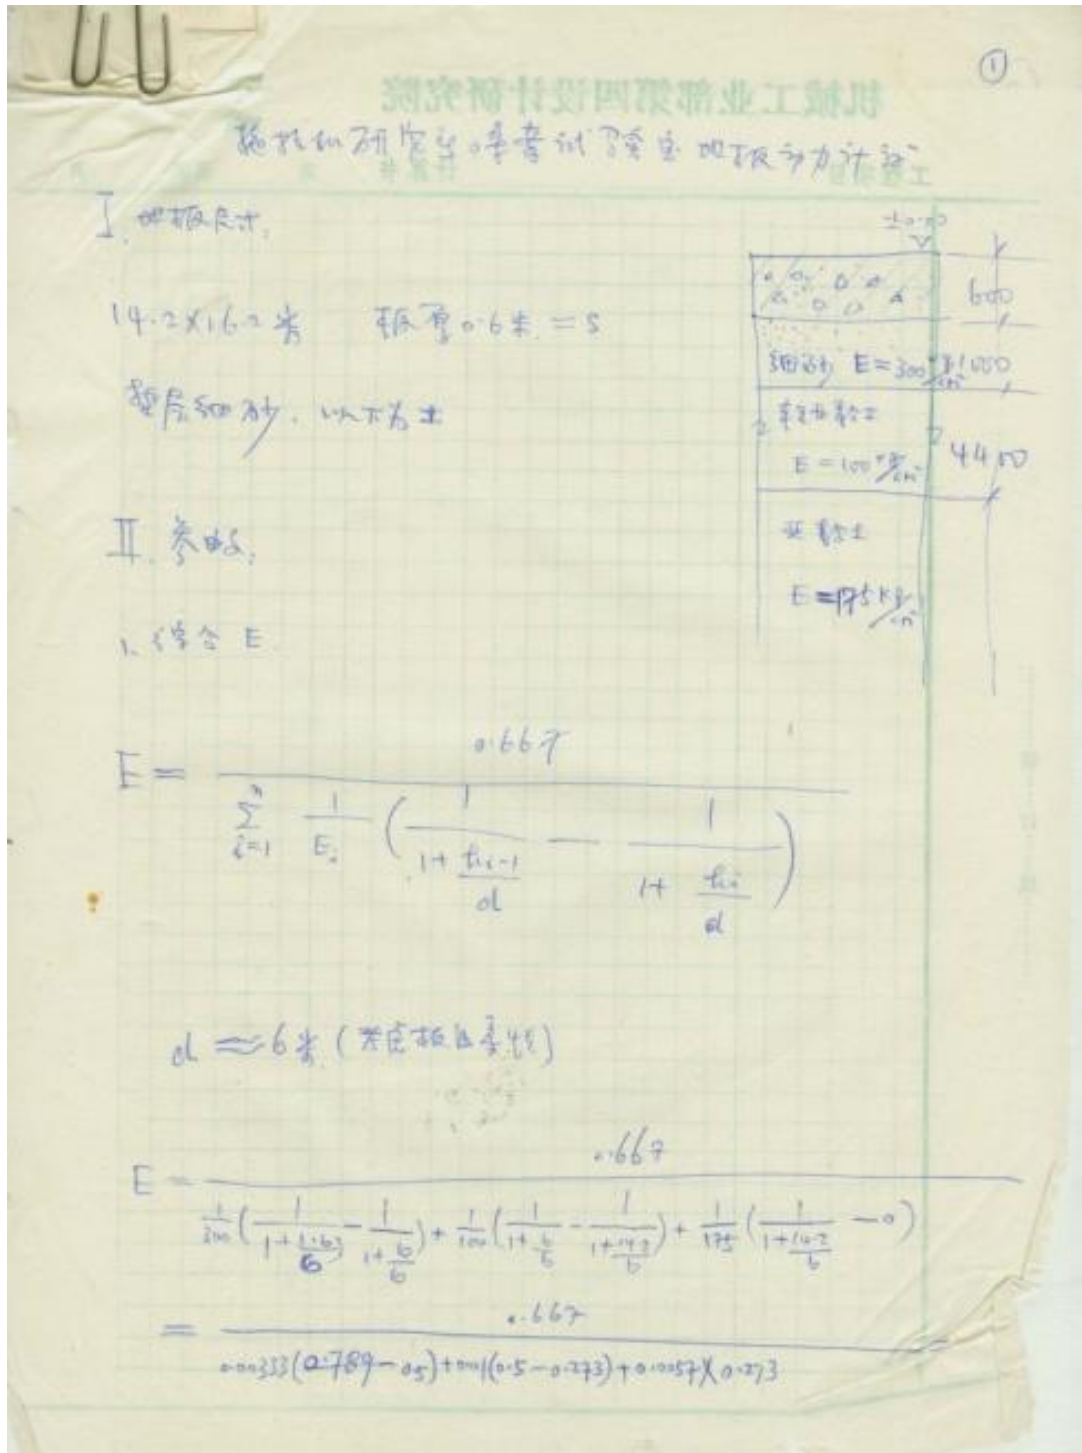 ①
机械工业部第四设计研究院
拖拉机研究所噪音试验室地板动力计算
工程项目
I. 地板尺寸.
14.2×16.2米 板厚0.6米 = S
垫层细砂. 以下为土
±0.00
600
细砂 E=300 kg/cm² 1000
轻亚黏土
E=100 kg/cm²
4400
亚黏土
E=175kg/cm²
II. 参数.
1. 综合 E.
E = 0.667 / ( \sum_{i=1}^{n} 1/E_i ( 1/(1+h_{i-1}/d) − 1/(1+h_i/d) ) )
d ≈ 6米 (考虑板的柔性)
E = 0.667 / ( 1/300 ( 1/(1+1.6/6) − 1/(1+6/6) ) + 1/100 ( 1/(1+6/6) − 1/(1+14.2/6) ) + 1/175 ( 1/(1+14.2/6) − 0 ) )
= 0.667 / ( 0.00333(0.789−0.5)+0.01(0.5−0.273)+0.0057×0.273 )